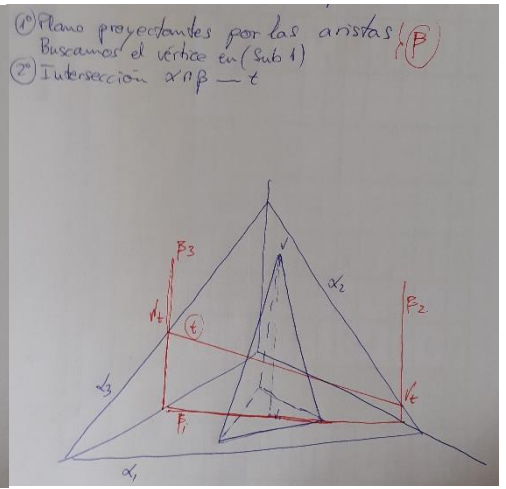 1º Plano proyectantes por las aristas } β
Buscamos el vértice en (Sub 1)
2º Intersección α∩β — t
V
β3
α2
β2
t
Vt
α3
Vt
β1
α1